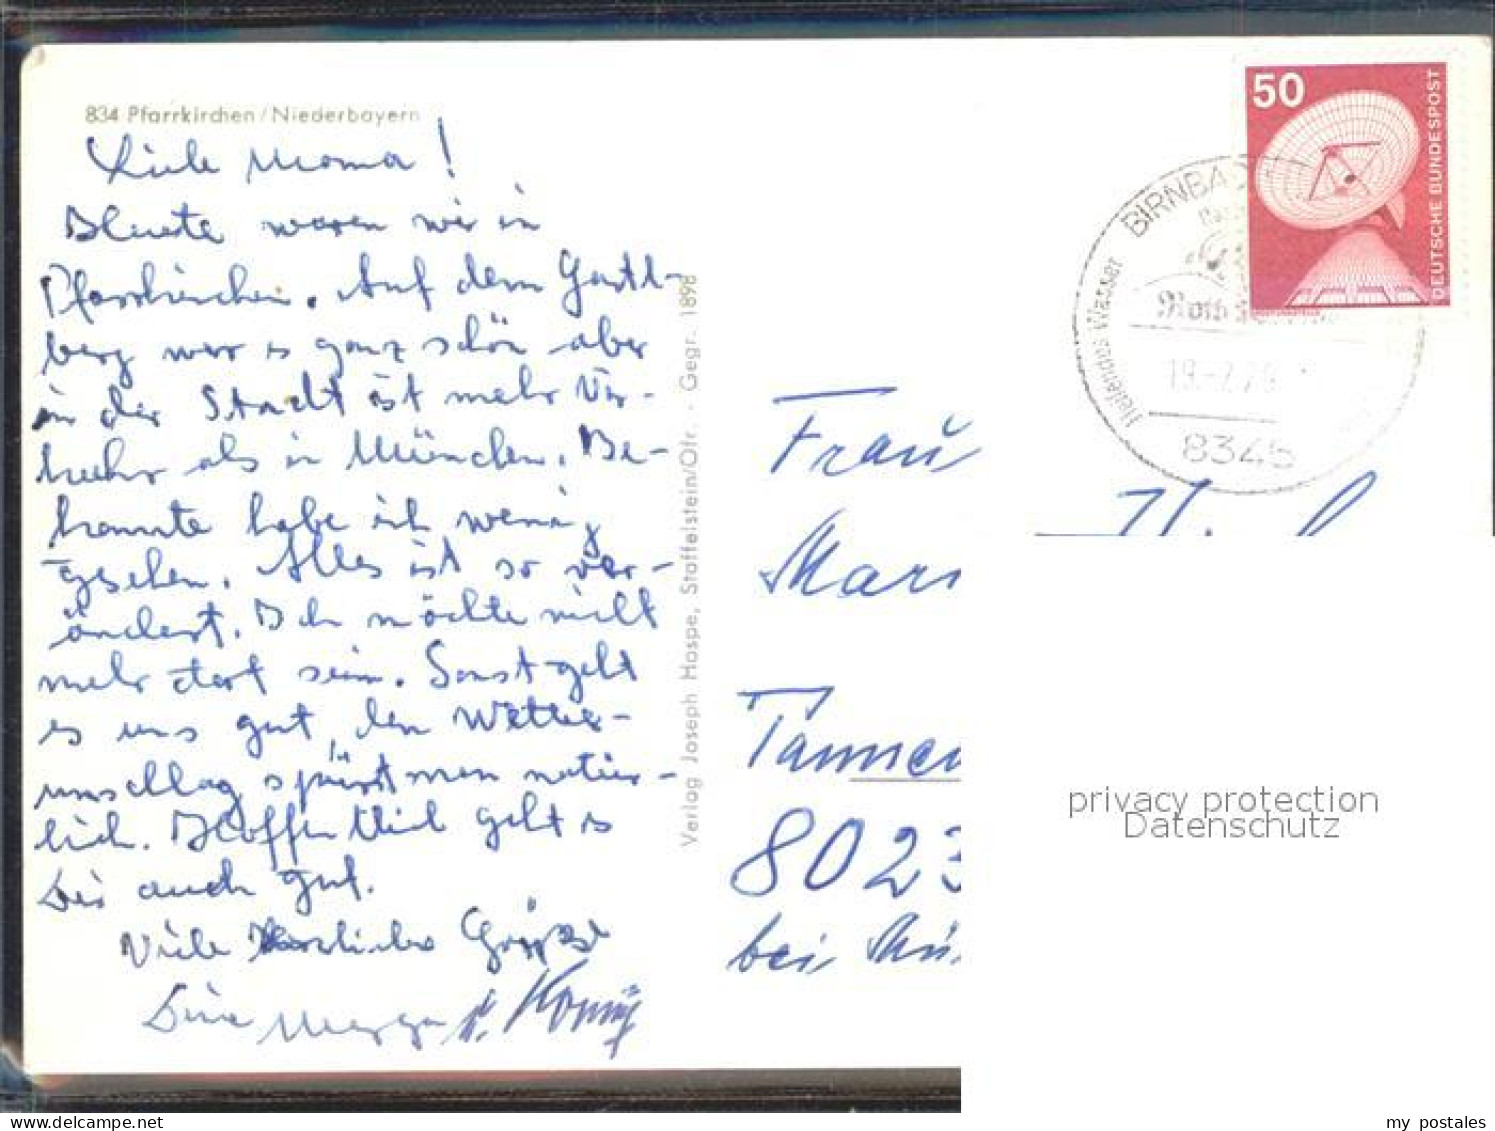 834 Pfarrkirchen/Niederbayern
Liebe Mama!
Heute waren wir in
Pfarrkirchen. Auf dem Gartl-
berg war es ganz schön aber
in der Stadt ist mehr Ver-
kehr als in München. Be-
kannte habe ich wenig
gesehen. Alles ist so ver-
ändert. Ich möchte nicht
mehr dort sein. Sonst geht
es uns gut, den Wetter-
umschlag spürt man natür-
lich. Hoffentlich geht es
Dir auch gut.
Viele herzliche Grüsse
Deine
Verlag Joseph Haspe, Staffelstein/Ofr. - Gegr. 1898
50
DEUTSCHE BUNDESPOST
BIRNBA
Heilendes Wasser
8345
Frau
Mar
Tannen
8023
bei Mü
privacy protection
Datenschutz
my postales